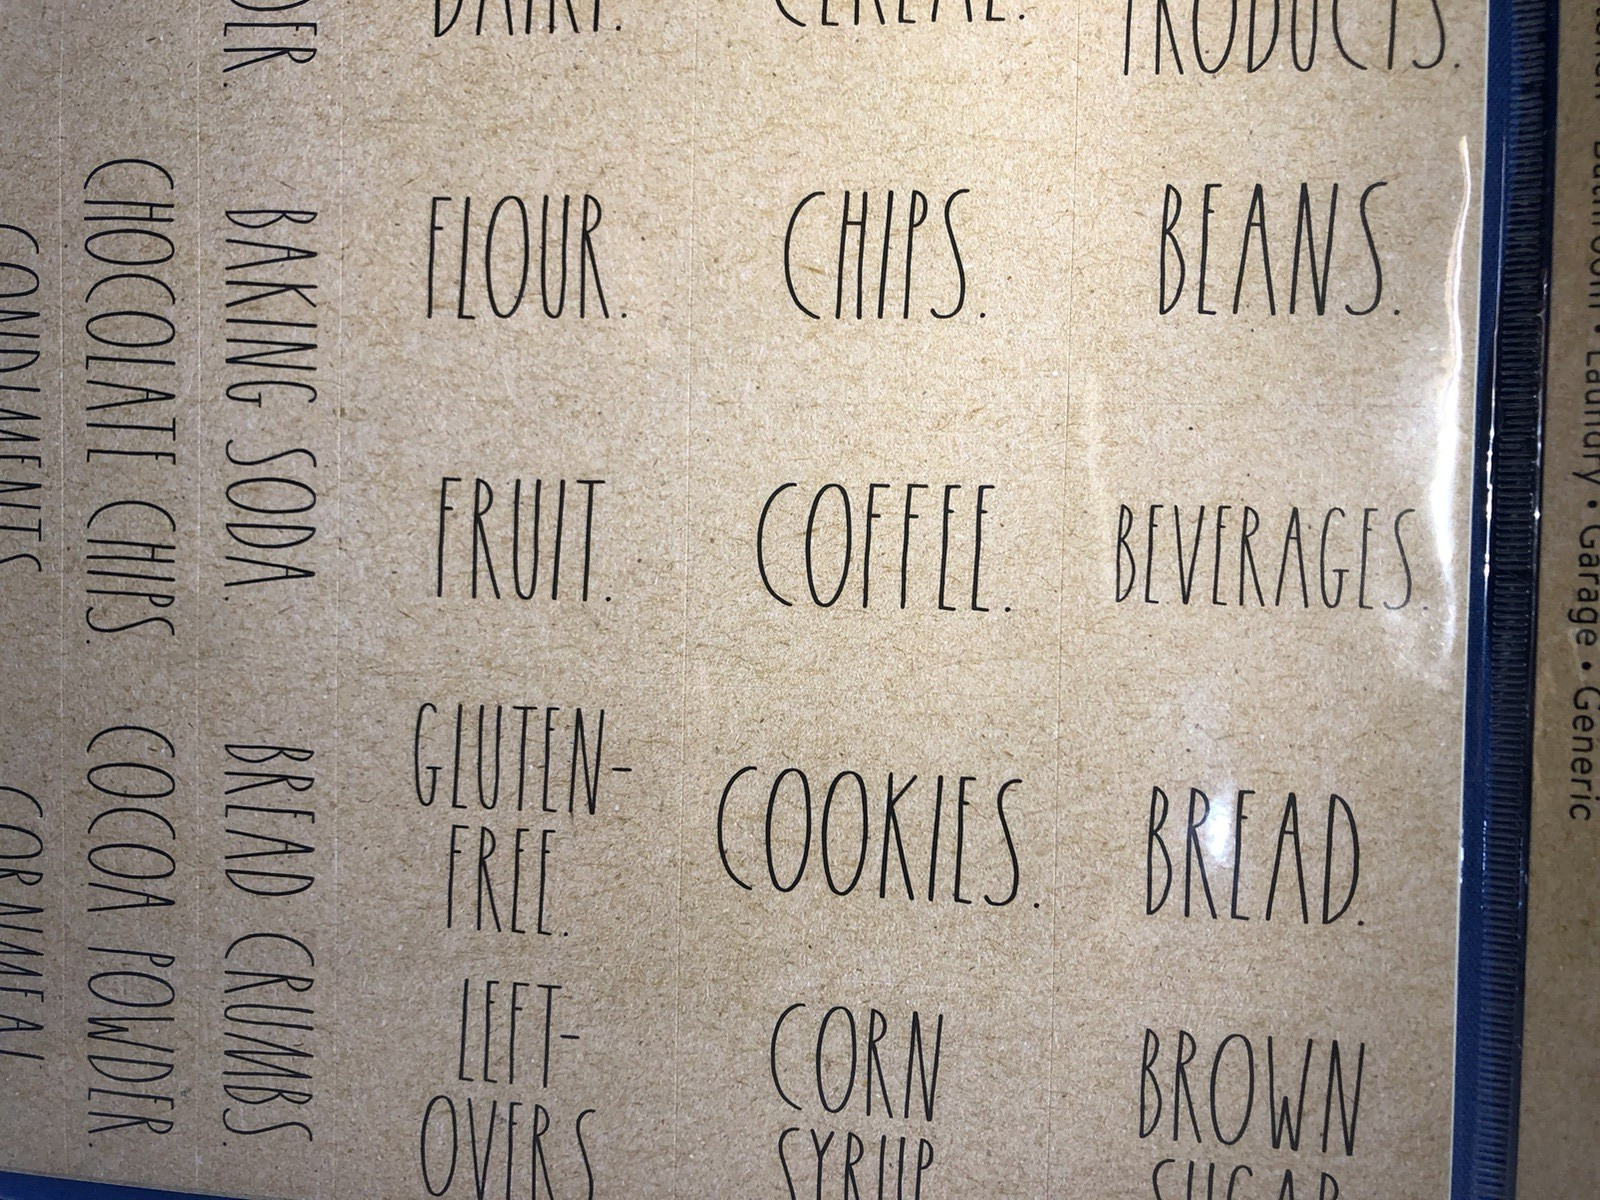 DAIRY.
CEREAL.
PRODUCTS.
FLOUR.
CHIPS.
BEANS.
FRUIT.
COFFEE.
BEVERAGES.
GLUTEN-
FREE.
COOKIES.
BREAD.
LEFT-
OVERS
CORN
SYRUP
BROWN
SUGAR
BAKING SODA.
BREAD CRUMBS.
CHOCOLATE CHIPS.
COCOA POWDER.
CONDIMENTS
CORNMEAL
Bathroom • Laundry • Garage • Generic